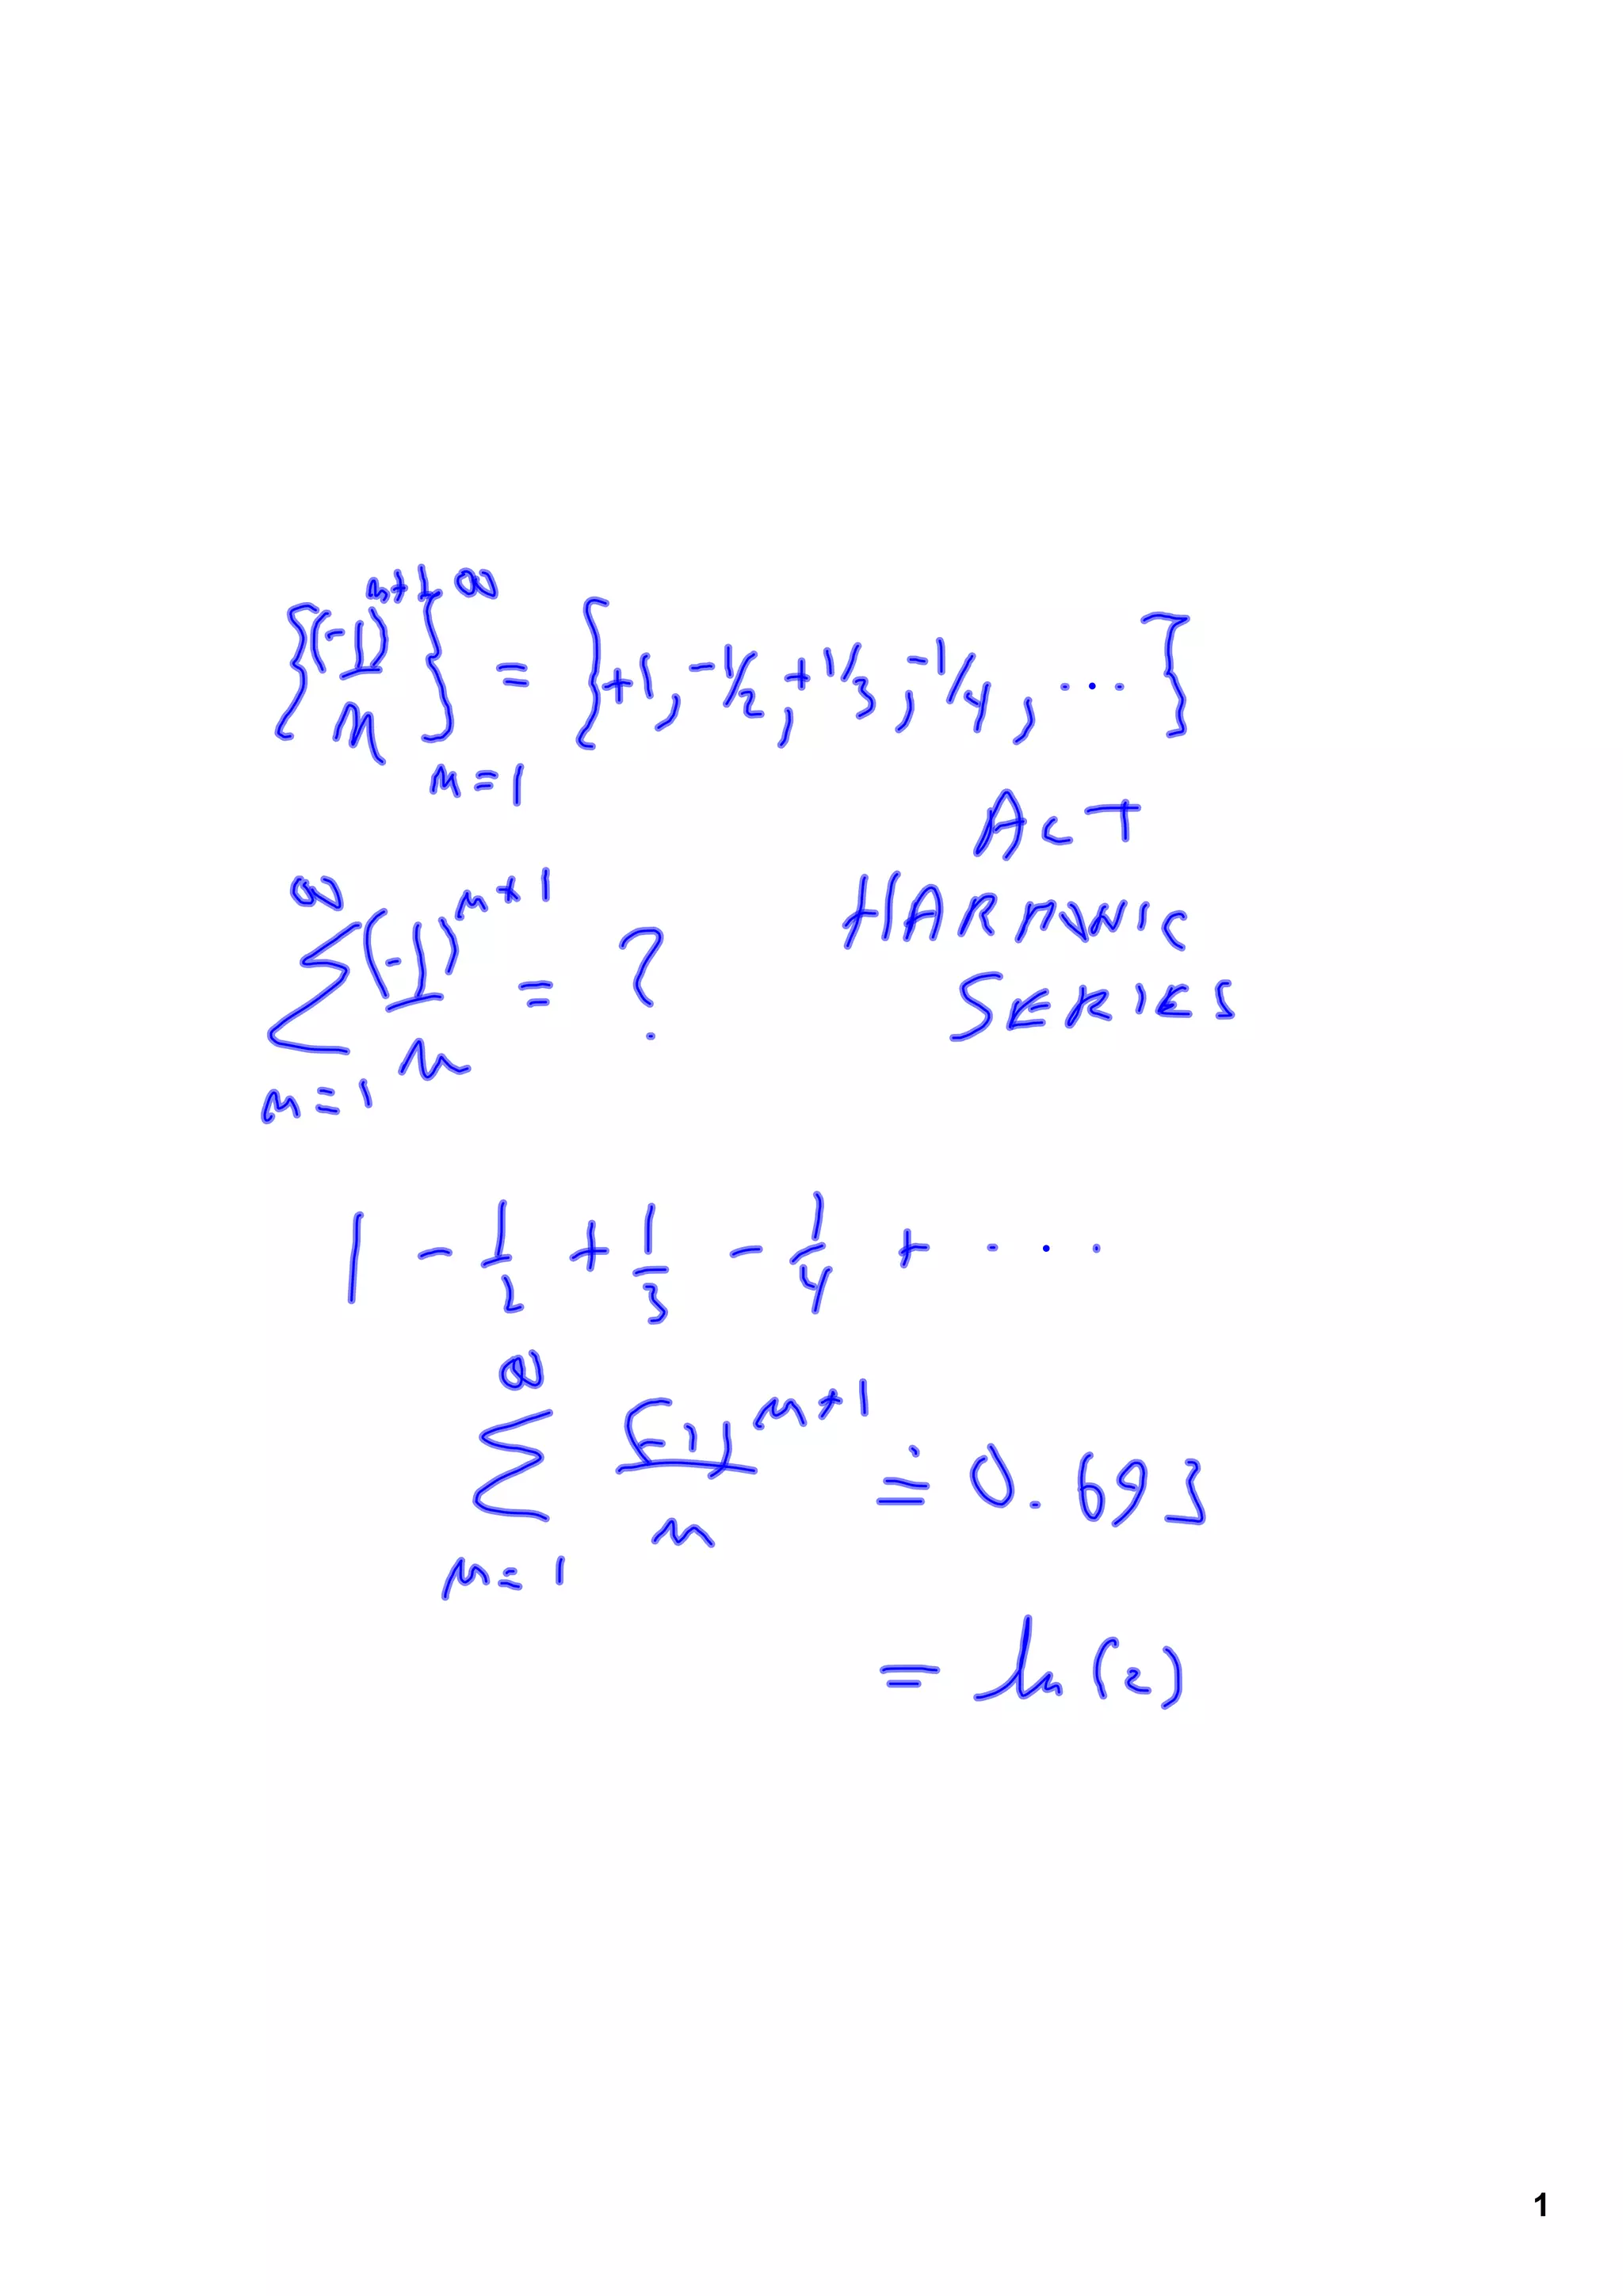 {(-1)^{n+1}/n}_{n=1}^{∞} = {+1, -1/2, +1/3, -1/4, ...}
ALT
HARMONIC
SERIES
∑_{n=1}^{∞} (-1)^{n+1}/n = ?
1 - 1/2 + 1/3 - 1/4 + ...
∑_{n=1}^{∞} (-1)^{n+1}/n ≐ 0.693
= ln(2)
1